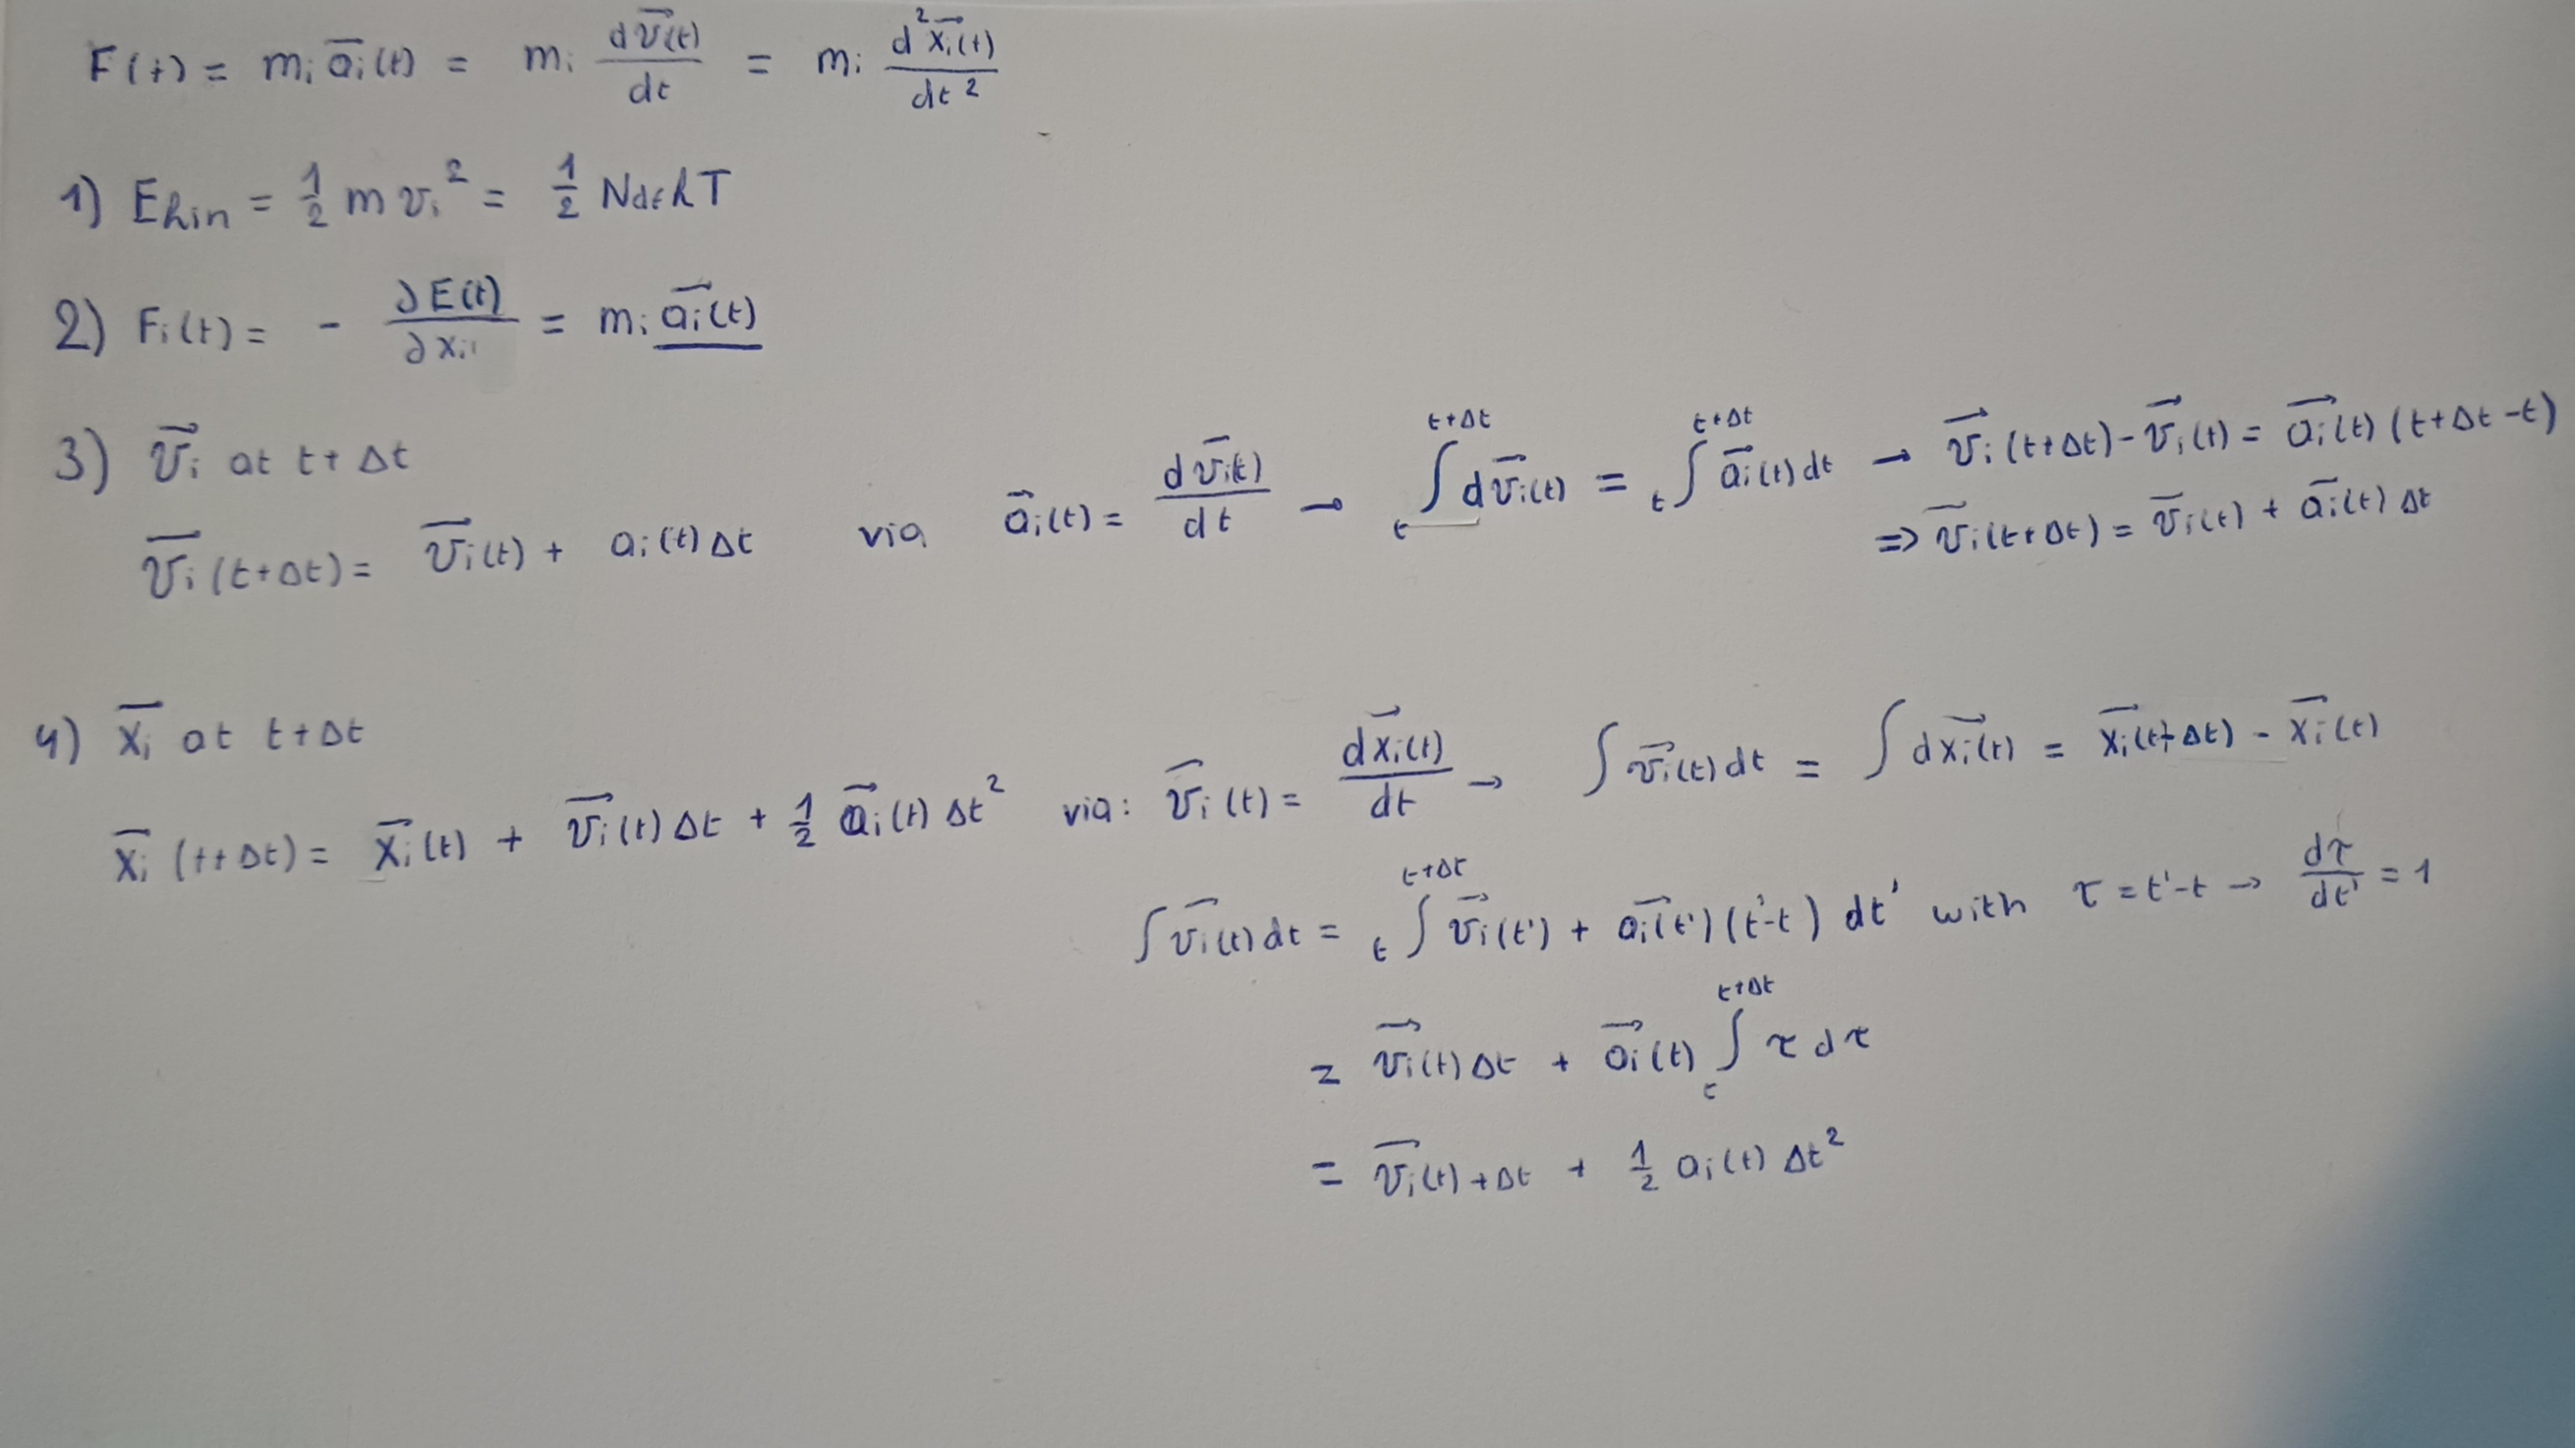 F(t) = mᵢ a⃗ᵢ(t) = mᵢ dv⃗ᵢ(t)/dt = mᵢ d²x⃗ᵢ(t)/dt²
1) Ekin = 1/2 m vᵢ² = 1/2 Ndf kT
2) Fᵢ(t) = - ∂E(t)/∂xᵢ = mᵢ a⃗ᵢ(t)
3) v⃗ᵢ at t+Δt
v⃗ᵢ(t+Δt) = v⃗ᵢ(t) + aᵢ(t)Δt via a⃗ᵢ(t) = dv⃗ᵢ(t)/dt → ₜ∫ᵗ⁺ᐞᵗ dv⃗ᵢ(t) = ₜ∫ᵗ⁺ᐞᵗ a⃗ᵢ(t)dt → v⃗ᵢ(t+Δt) - v⃗ᵢ(t) = a⃗ᵢ(t)(t+Δt-t)
⇒ v⃗ᵢ(t+Δt) = v⃗ᵢ(t) + a⃗ᵢ(t) Δt
4) x⃗ᵢ at t+Δt
x⃗ᵢ(t+Δt) = x⃗ᵢ(t) + v⃗ᵢ(t)Δt + 1/2 a⃗ᵢ(t)Δt² via: v⃗ᵢ(t) = dx⃗ᵢ(t)/dt → ∫v⃗ᵢ(t)dt = ∫dx⃗ᵢ(t) = x⃗ᵢ(t+Δt) - x⃗ᵢ(t)
∫v⃗ᵢ(t)dt = ₜ∫ᵗ⁺ᐞᵗ v⃗ᵢ(t') + a⃗ᵢ(t')(t'-t) dt' with τ = t'-t → dτ/dt' = 1
= v⃗ᵢ(t)Δt + a⃗ᵢ(t) ₜ∫ᵗ⁺ᐞᵗ τ dτ
= v⃗ᵢ(t)+Δt + 1/2 aᵢ(t)Δt²